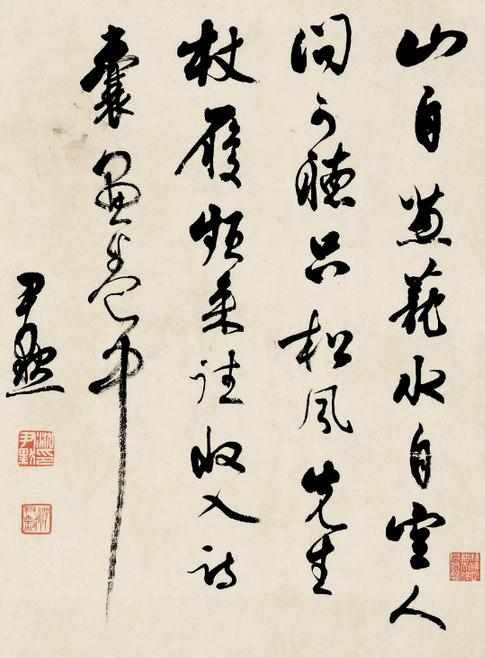 山自蔥蘢水自空人
間可聽只松風先生
杖履頻來往收入詩
囊畫卷中
尹默